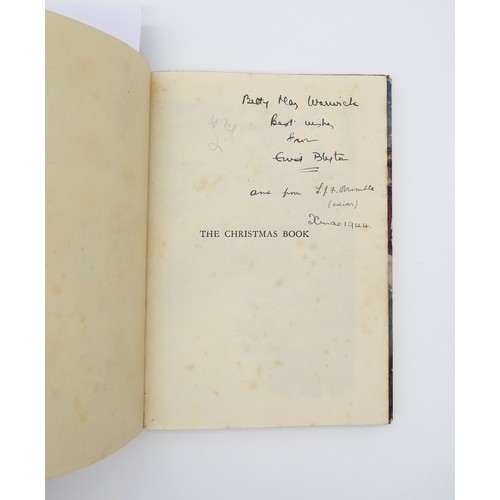 Betty May Warwick
Best wishes
from
Enid Blyton
and from L.J.F. Brimble
(Editor)
Xmas 1944.
THE CHRISTMAS BOOK